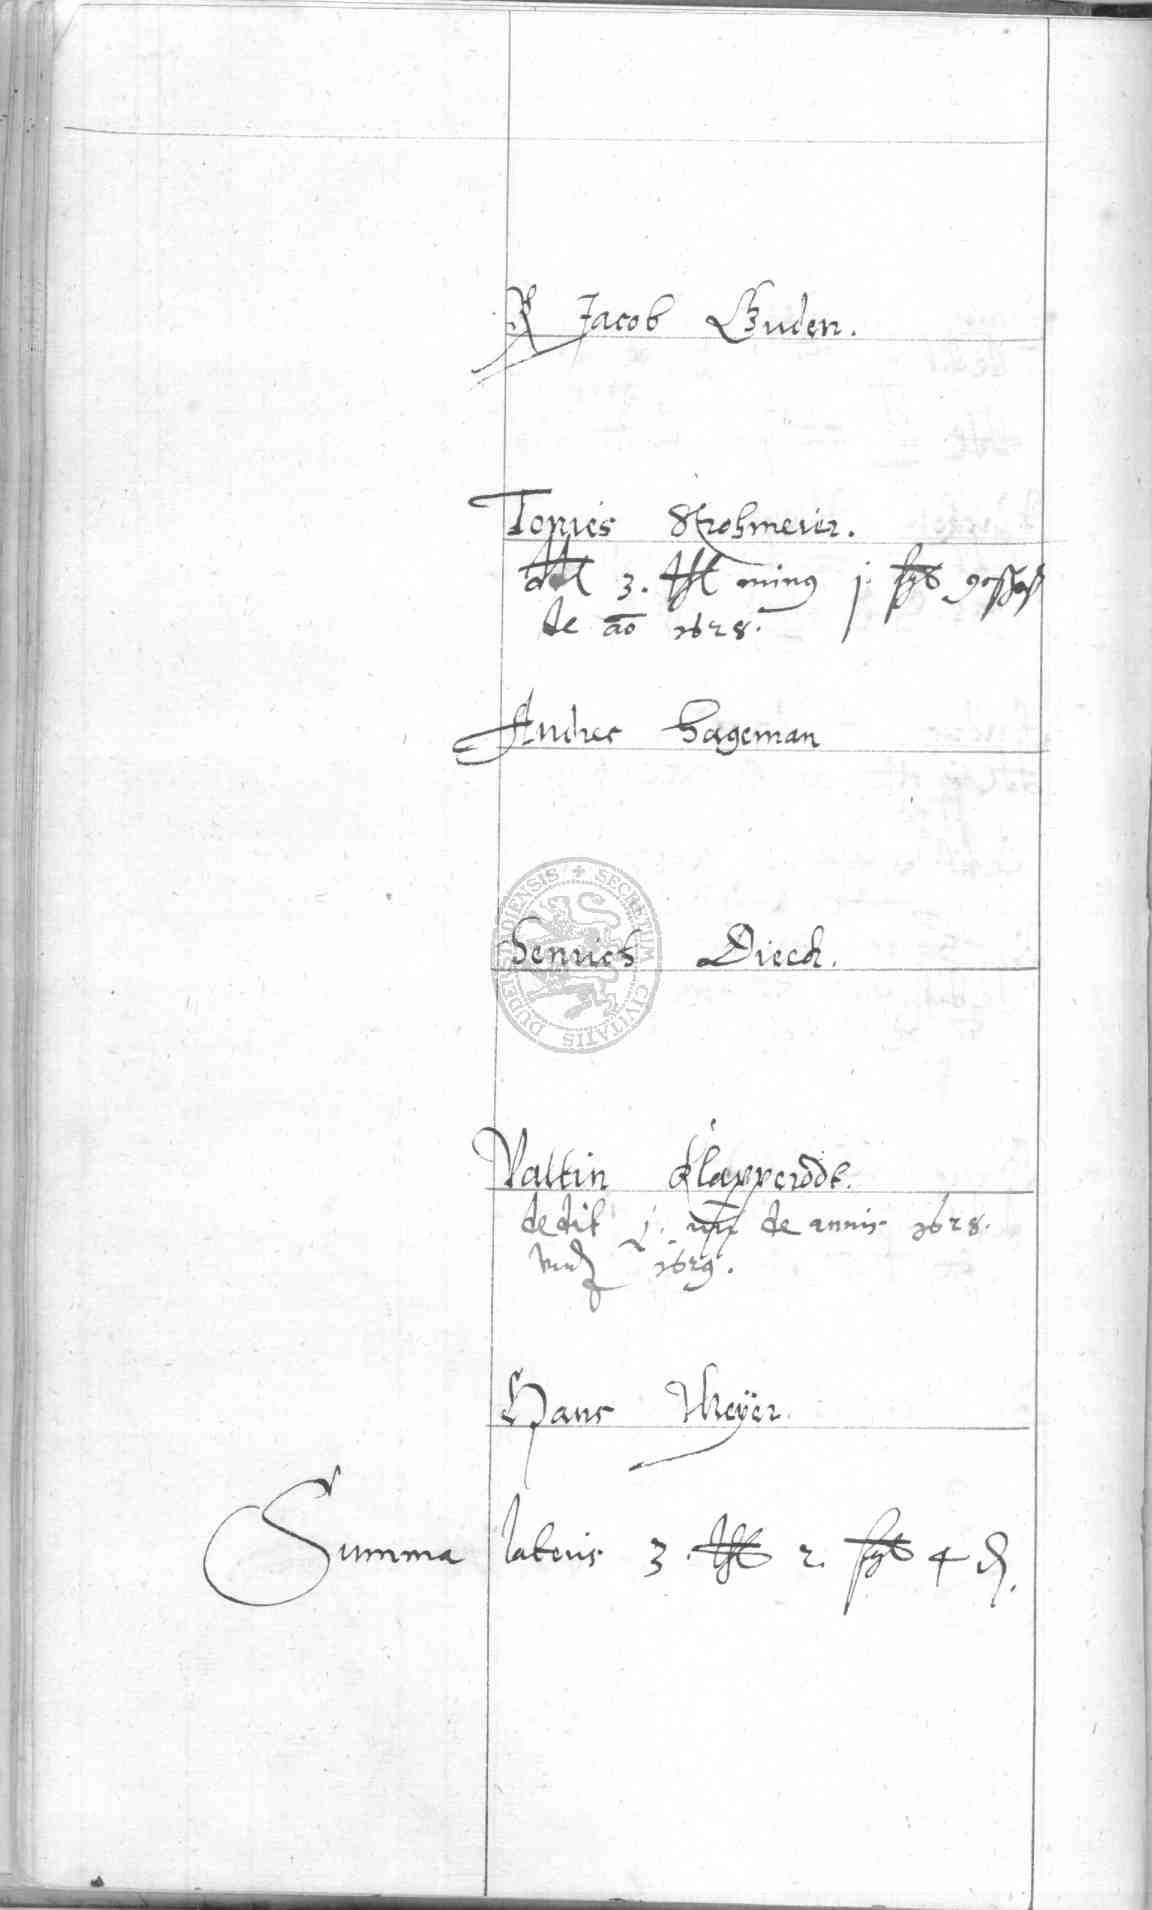 Jacob Guden.
Tonies Strohmeier.
dt 3. thl minus j. sgb
de ao 1628.
Andres Hageman
Henrich Dieck.
SECRETUM CIVITATIS DUDERSTADIENSIS
Valtin Klapperodt.
dedit j. de annis 1628.
und 1629.
Hans Meÿer.
Summa lateris 3. thl 2. sgb 4 d.